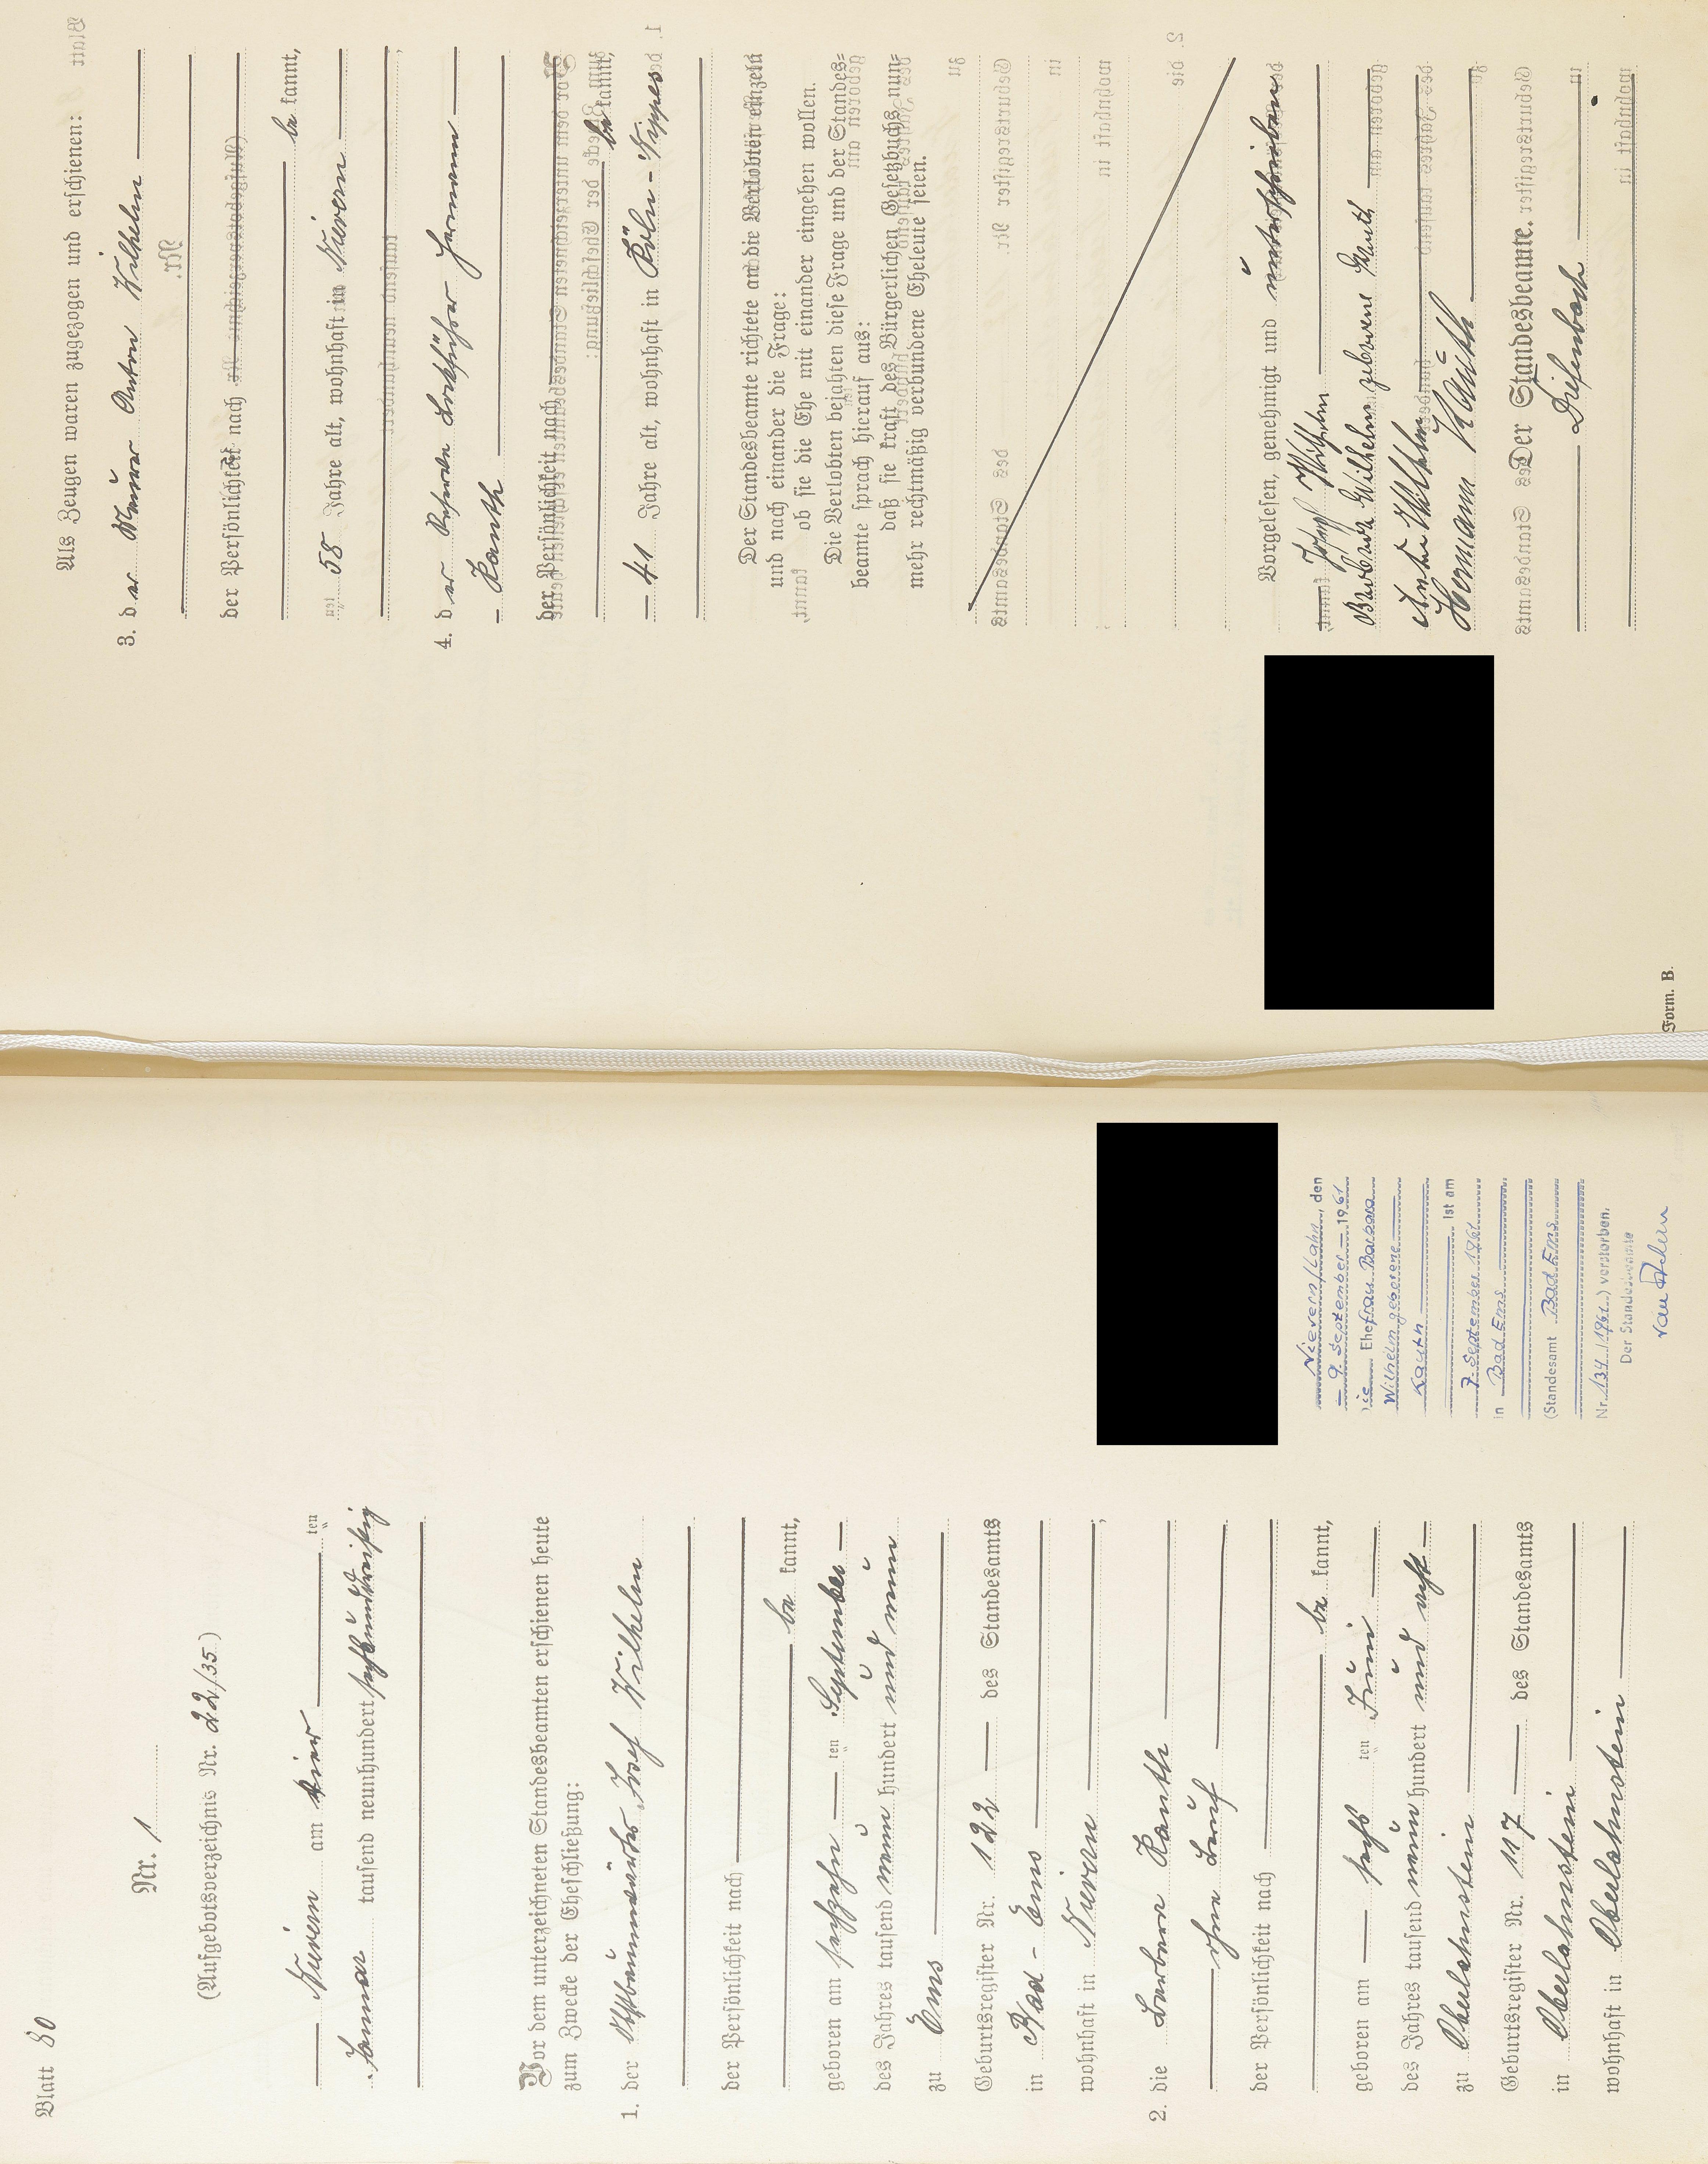 Blatt 80
Nr. 1
(Aufgebotsverzeichnis Nr. 22/35)
Nievern am vier ten
Januar tausend neunhundert sechsunddreißig
Vor dem unterzeichneten Standesbeamten erschienen heute
zum Zwecke der Eheschließung:
1. der Josef Wilhelm
der Persönlichkeit nach
be kannt,
geboren am sechzehn ten September
des Jahres tausend neun hundert und neun
zu Ems
Geburtsregister Nr. 122 des Standesamts
in Bad-Ems
wohnhaft in Nievern,
2. die Barbara Kauth
ohne Beruf
der Persönlichkeit nach
be kannt,
geboren am sechs ten Juni
des Jahres tausend neun hundert und acht
zu Oberlahnstein
Geburtsregister Nr. 117 des Standesamts
in Oberlahnstein
wohnhaft in Oberlahnstein
Nievern/Lahn, den
9. September 1961
Die Ehefrau Barbara
Wilhelm geborene
Kauth
ist am
7. September 1961
in Bad Ems
(Standesamt Bad Ems
Nr. 134/1961) verstorben.
Der Standesbeamte
Als Zeugen waren zugezogen und erschienen:
3. der Maurer Anton Wilhelm
der Persönlichkeit nach
be kannt,
58 Jahre alt, wohnhaft in Nievern
4. der Hermann
Kauth
der Persönlichkeit nach
be kannt,
41 Jahre alt, wohnhaft in Köln-Nippes
Der Standesbeamte richtete an die Verlobten einzeln
und nach einander die Frage:
ob sie die Ehe mit einander eingehen wollen.
Die Verlobten bejahten diese Frage und der Standes=
beamte sprach hierauf aus:
daß sie kraft des Bürgerlichen Gesetzbuchs nun=
mehr rechtmäßig verbundene Eheleute seien.
Vorgelesen, genehmigt und unterschrieben
Josef Wilhelm
Barbara Wilhelm geborene Kauth
Anton Wilhelm
Hermann Kauth
Der Standesbeamte.
Diefenbach
Form. B.